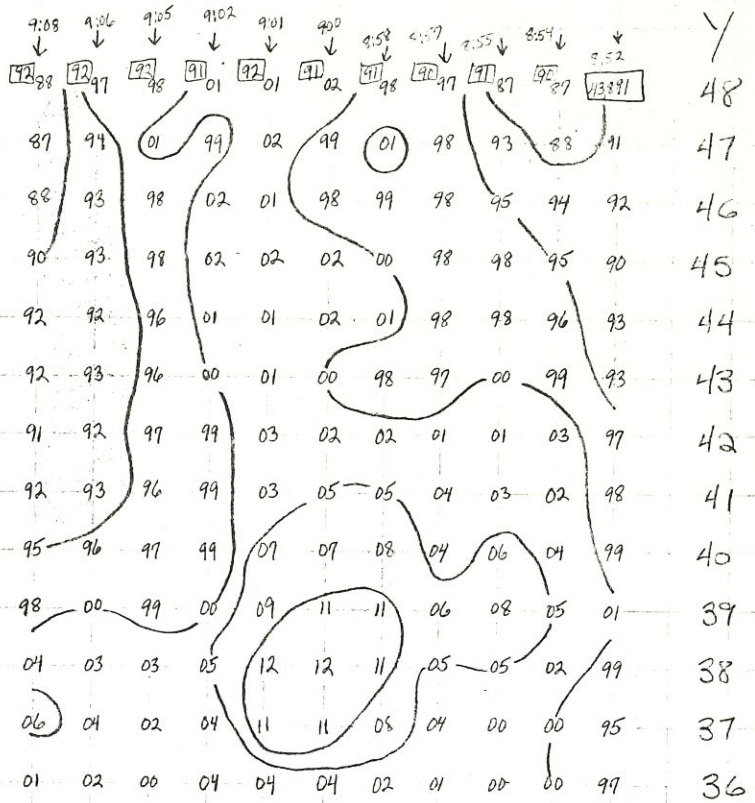 9:08 9:06 9:05 9:02 9:01 900 8:58 8:57 8:55 8:54 8:52 Y
92 88 92 97 93 98 91 01 92 01 91 02 91 98 90 97 91 87 90 87 43891 48
87 94 01 99 02 99 01 98 93 88 91 47
88 93 98 02 01 98 99 98 95 94 92 46
90 93 98 02 02 02 00 98 98 95 90 45
92 92 96 01 01 02 01 98 98 96 93 44
92 93 96 00 01 00 98 97 00 99 93 43
91 92 97 99 03 02 02 01 01 03 97 42
92 93 96 99 03 05 05 04 03 02 98 41
95 96 97 99 07 07 08 04 06 04 99 40
98 00 99 00 09 11 11 06 08 05 01 39
04 03 03 05 12 12 11 05 05 02 99 38
06 04 02 04 11 11 08 04 00 00 95 37
01 02 00 04 04 04 02 01 00 00 97 36